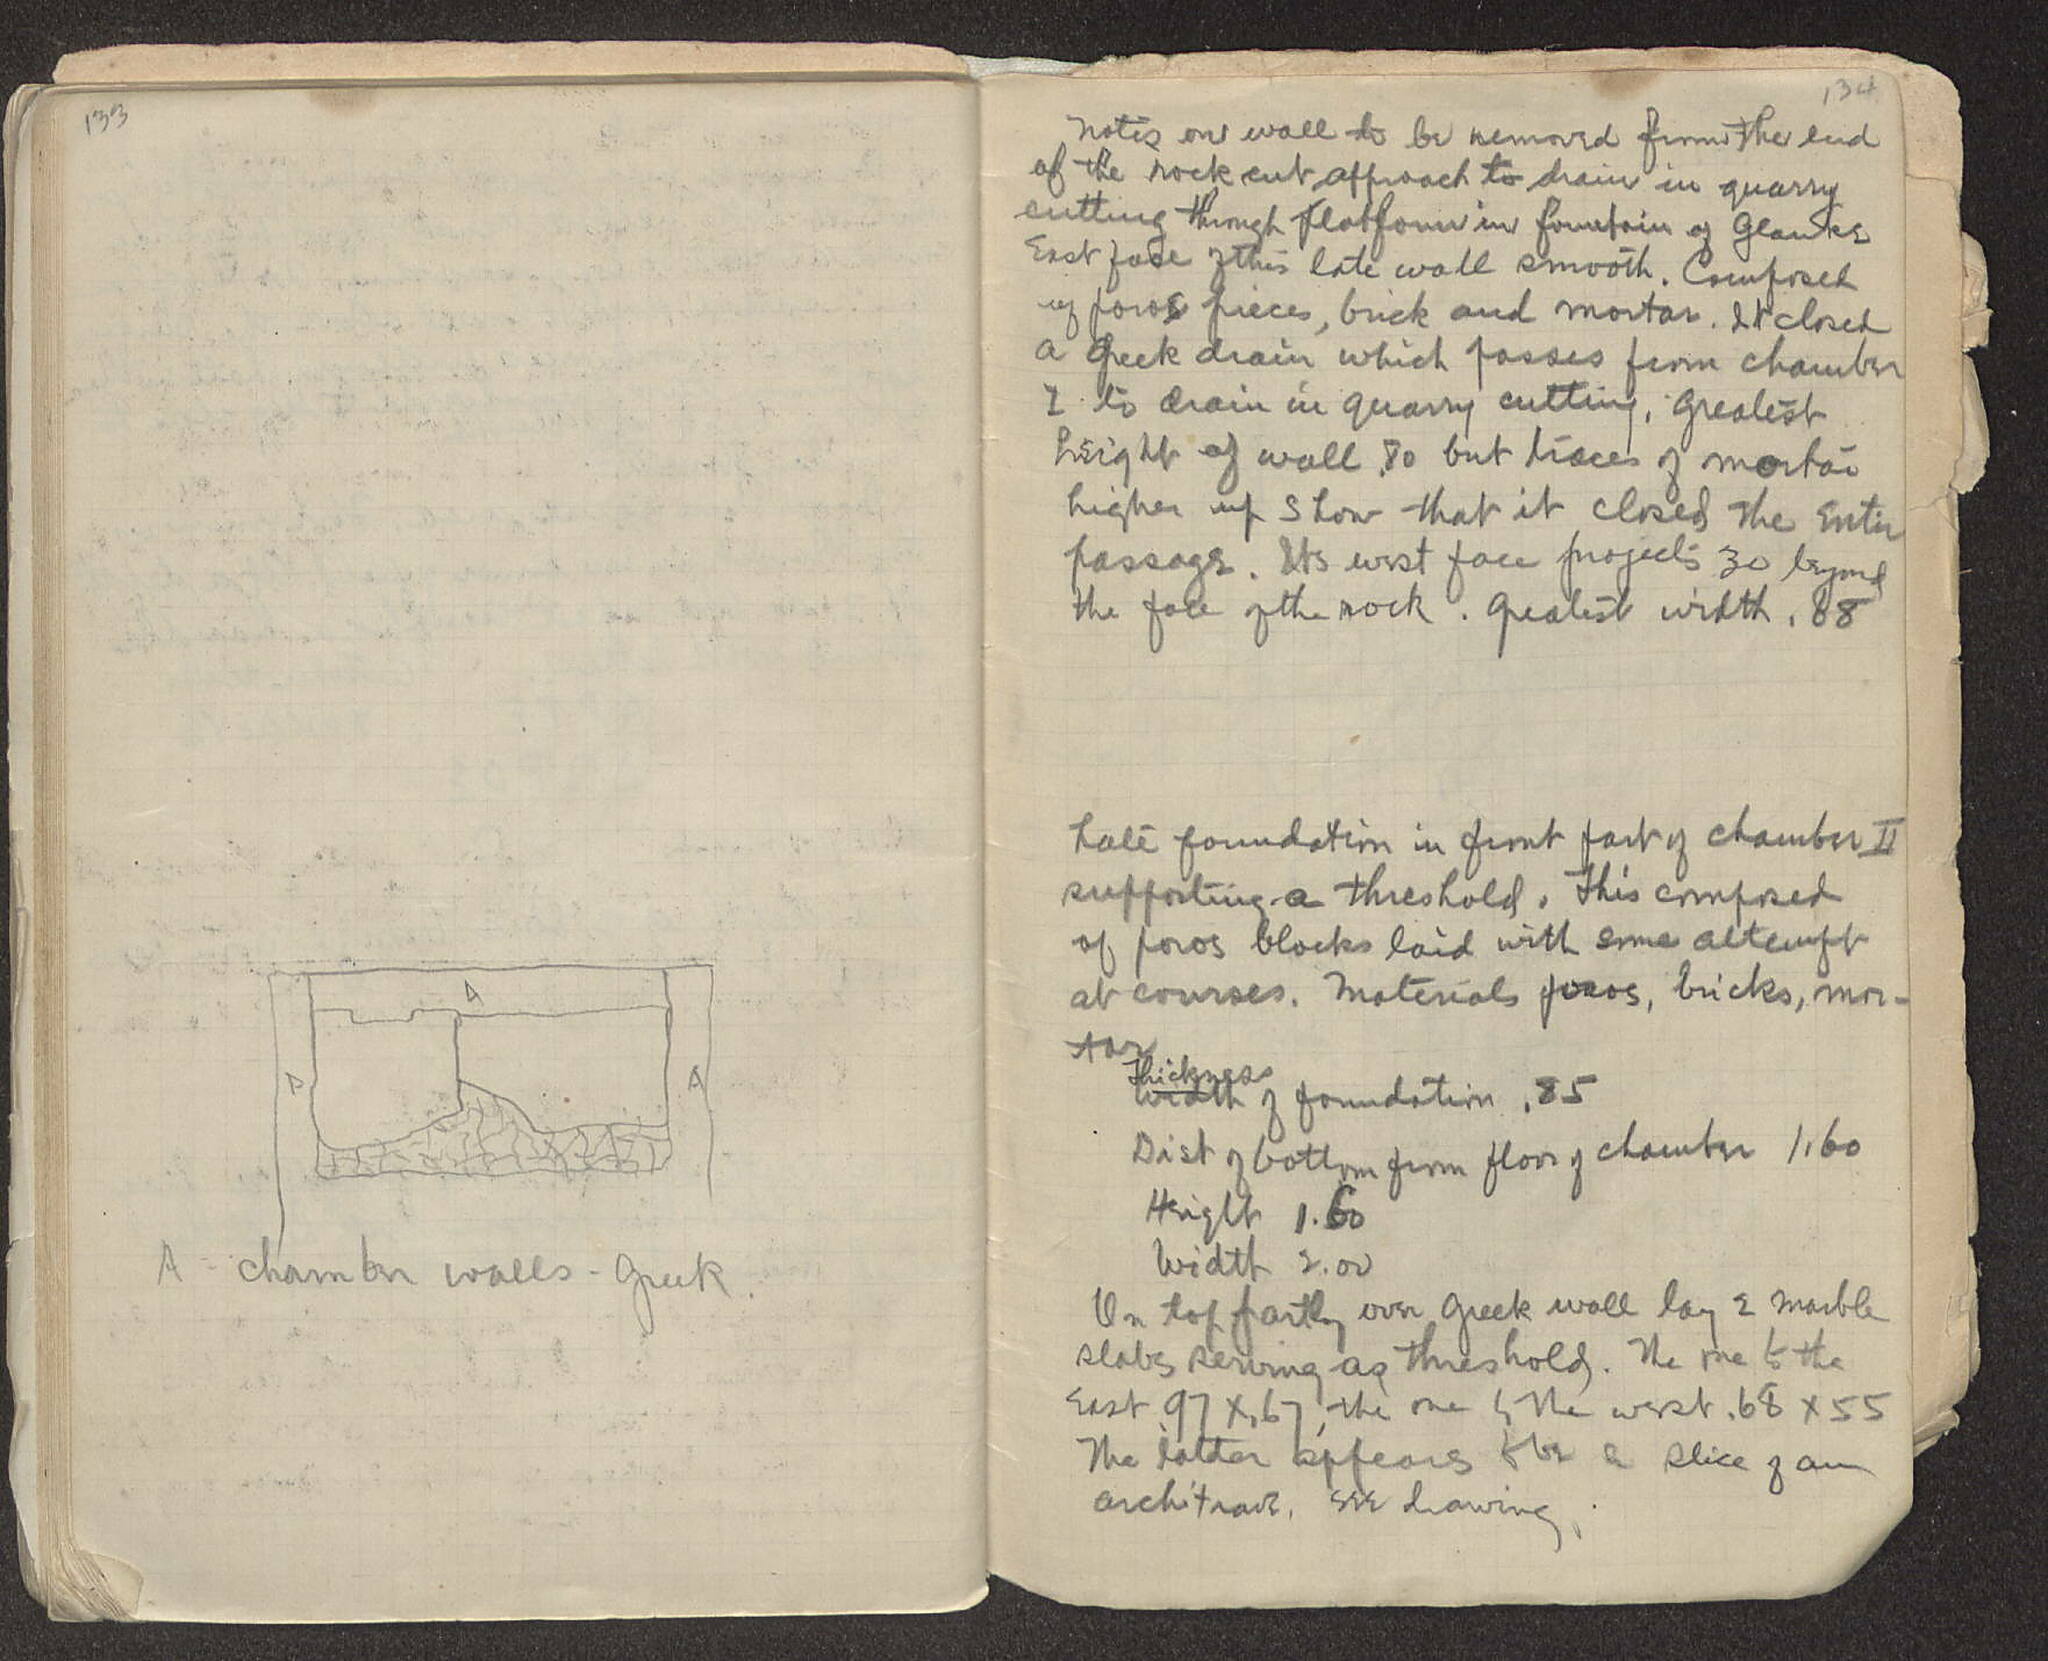 133
A
A
A
A - chamber walls - Greek.
134
Notes on wall to be removed from the end
of the rock cut approach to drain in quarry
cutting through platform in fountain of Glauke
East face of this late wall smooth. Composed
of poros pieces, brick and mortar. It closed
a Greek drain which passes from chamber
I to drain in quarry cutting. Greatest
height of wall .80 but traces of mortar
higher up show that it closed the entire
passage. Its west face projects 30 beyond
the face of the rock. Greatest width .88
Late foundation in front part of chamber II
supporting a threshold. This composed
of poros blocks laid with some attempt
at courses. Materials poros, bricks, mor-
tar
Thickness
Width of foundation .85
Dist of bottom from floor of chamber 1.60
Height 1.60
Width 2.00
On top partly over Greek wall lay 2 marble
slabs serving as threshold. The one to the
East .97 x .67, the one to the west .68 x 55
The latter appears to be a slice of an
architrave. See drawing.